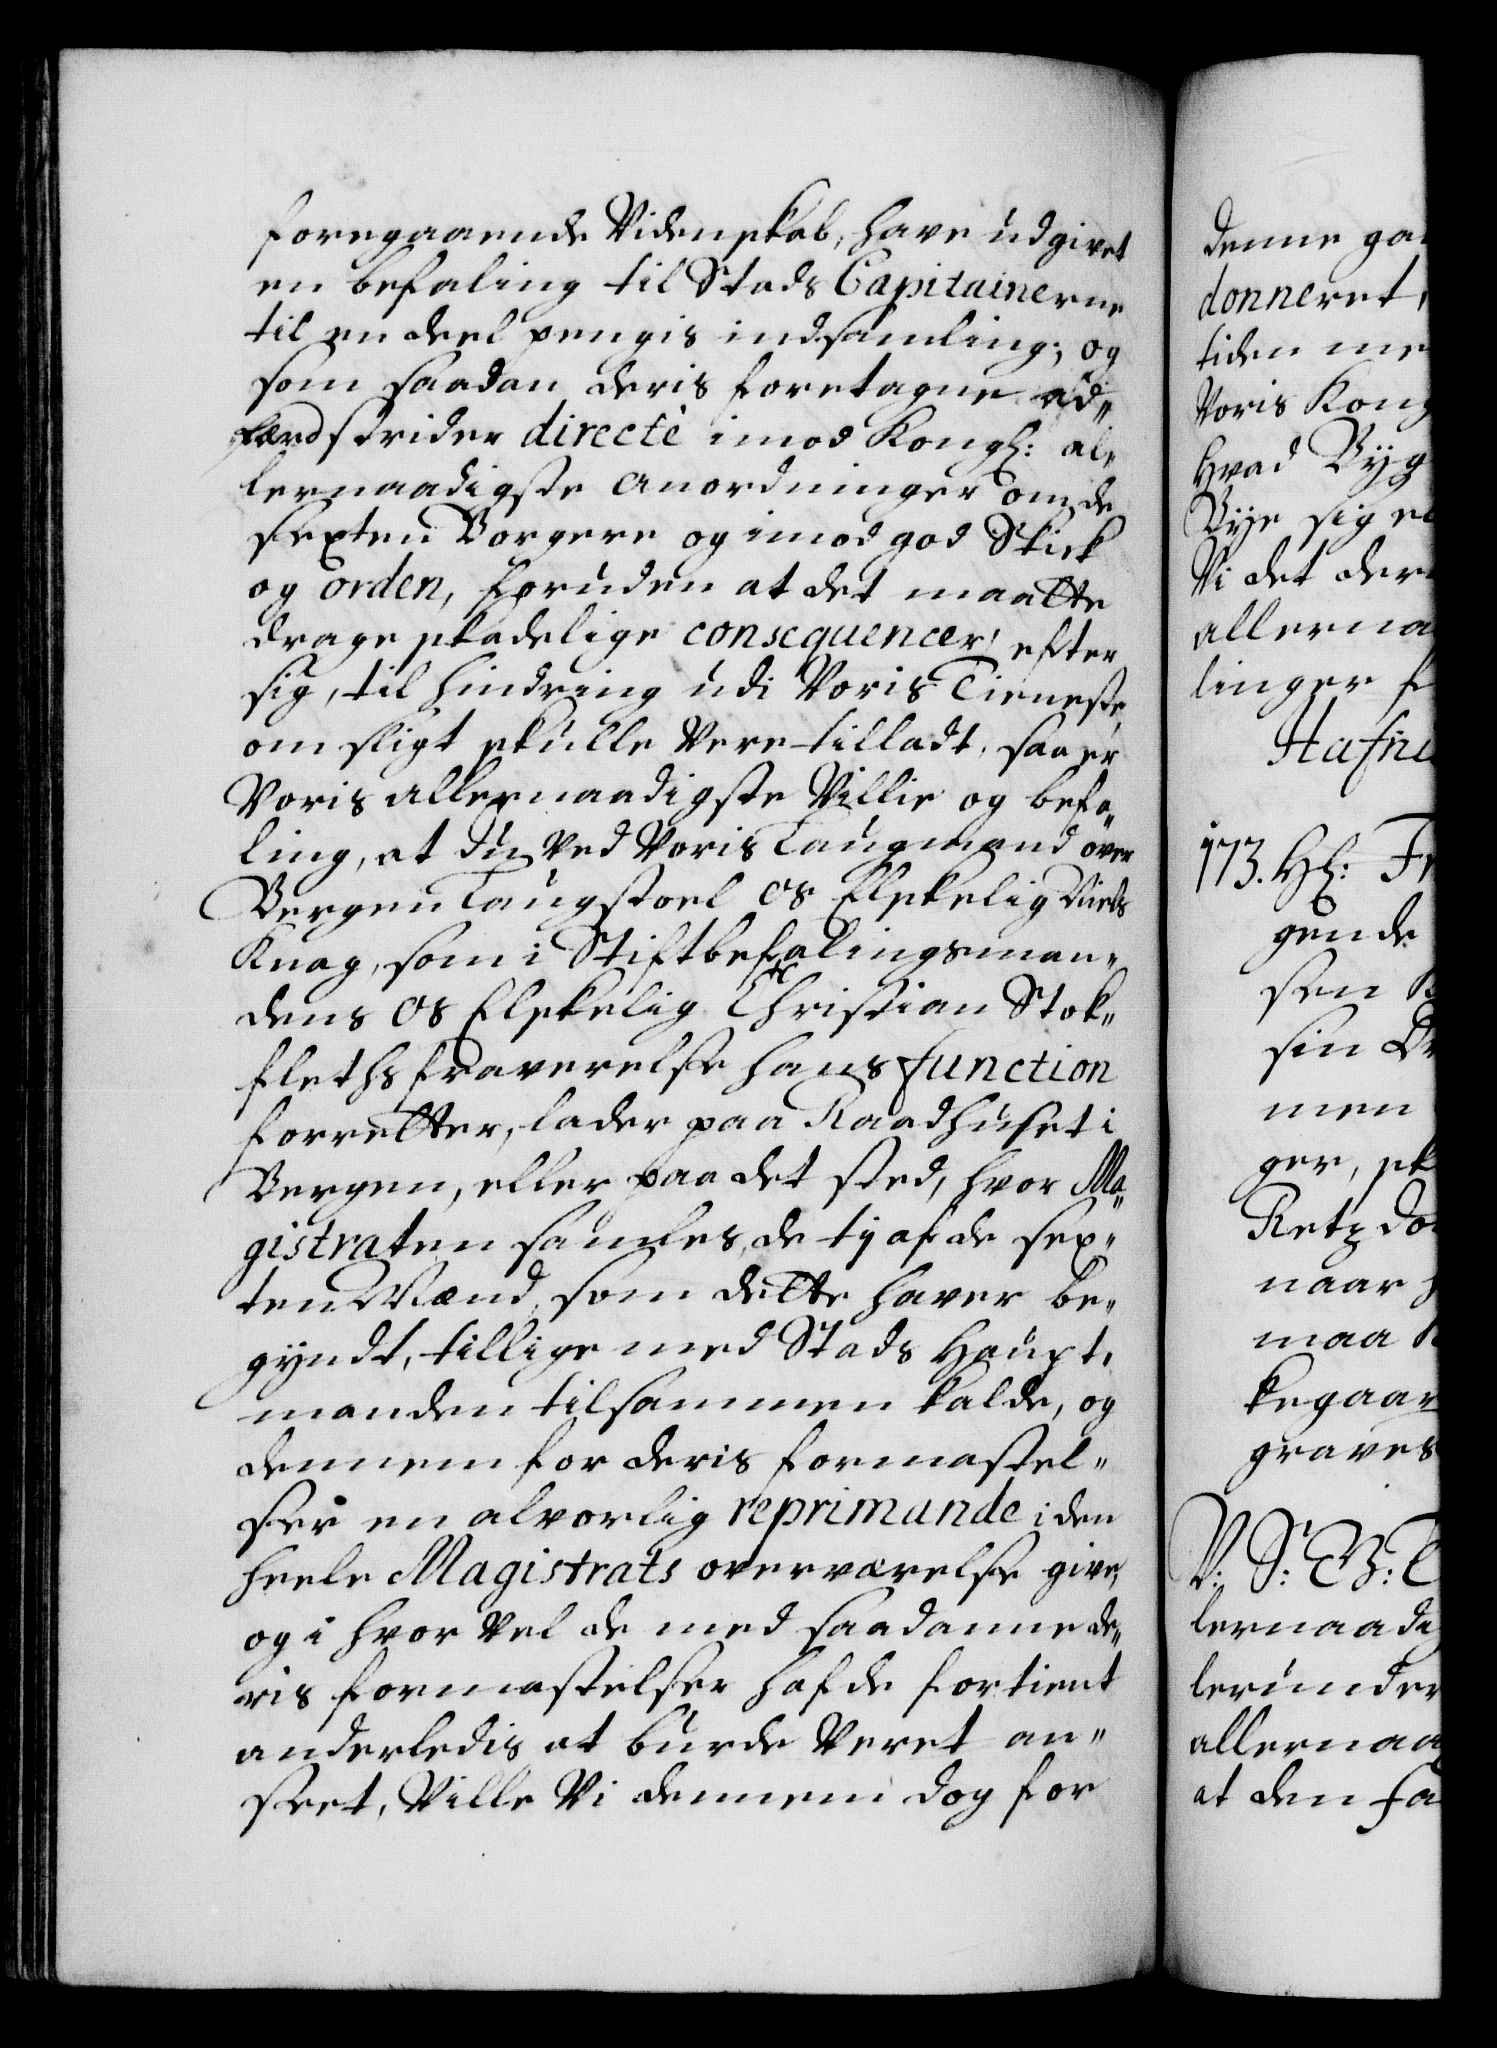 foregaaende Videnskab, have udgivet
en befaling til Stads Capitainerne
til en deel pengis indsamling; og
som saadan deris foretagne ad„
færd strider directè imod Kongl: al„
lernaadigste anordninger om de
sexten Borgere og imod god Skick
og orden, foruden at det maatte
drage skadelige consequencer efter
sig, til hindring udi Voris Tieneste,
om sligt skulle Vere tilladt, saa er
Voris allernaadigste Villie og befa„
ling, at du ved Voris Laugmand over
Bergen Laugstoel os Elskelig Niels
Knag, som i Stiftbefalingsman„
dens os Elskelig Christian Stok„
fleths fraverelse hans function
forretter, lader paa Raadhuset i
Bergen, eller paa det sted, hvor Ma„
gistraten samles, de ti af de sex„
ten Mænd, som dette haver be„
gyndt, tillige med Stads Haupt„
manden tilsammen kalde, og
dennem for deris formastel„
ser en alvorlig reprimande i den
heele Magistrats overværelse give,
og i hvor vel de med saadanne de„
ris formastelser hafde fortient
anderledis at burde Veret an„
seet, Ville Vi dennem dog for
denne ga
donneret,
tiden me
Voris Kong
hvad Byg
Bye sig
Vi det der
allerna
linger
Hafni
173. Hl: Fr
gende
sen
sin
men
ger, sk
Retz do
naar
maa
kegaar
graves
V: S: G: T
lernaadig
lerunder
allernaa
at den fa